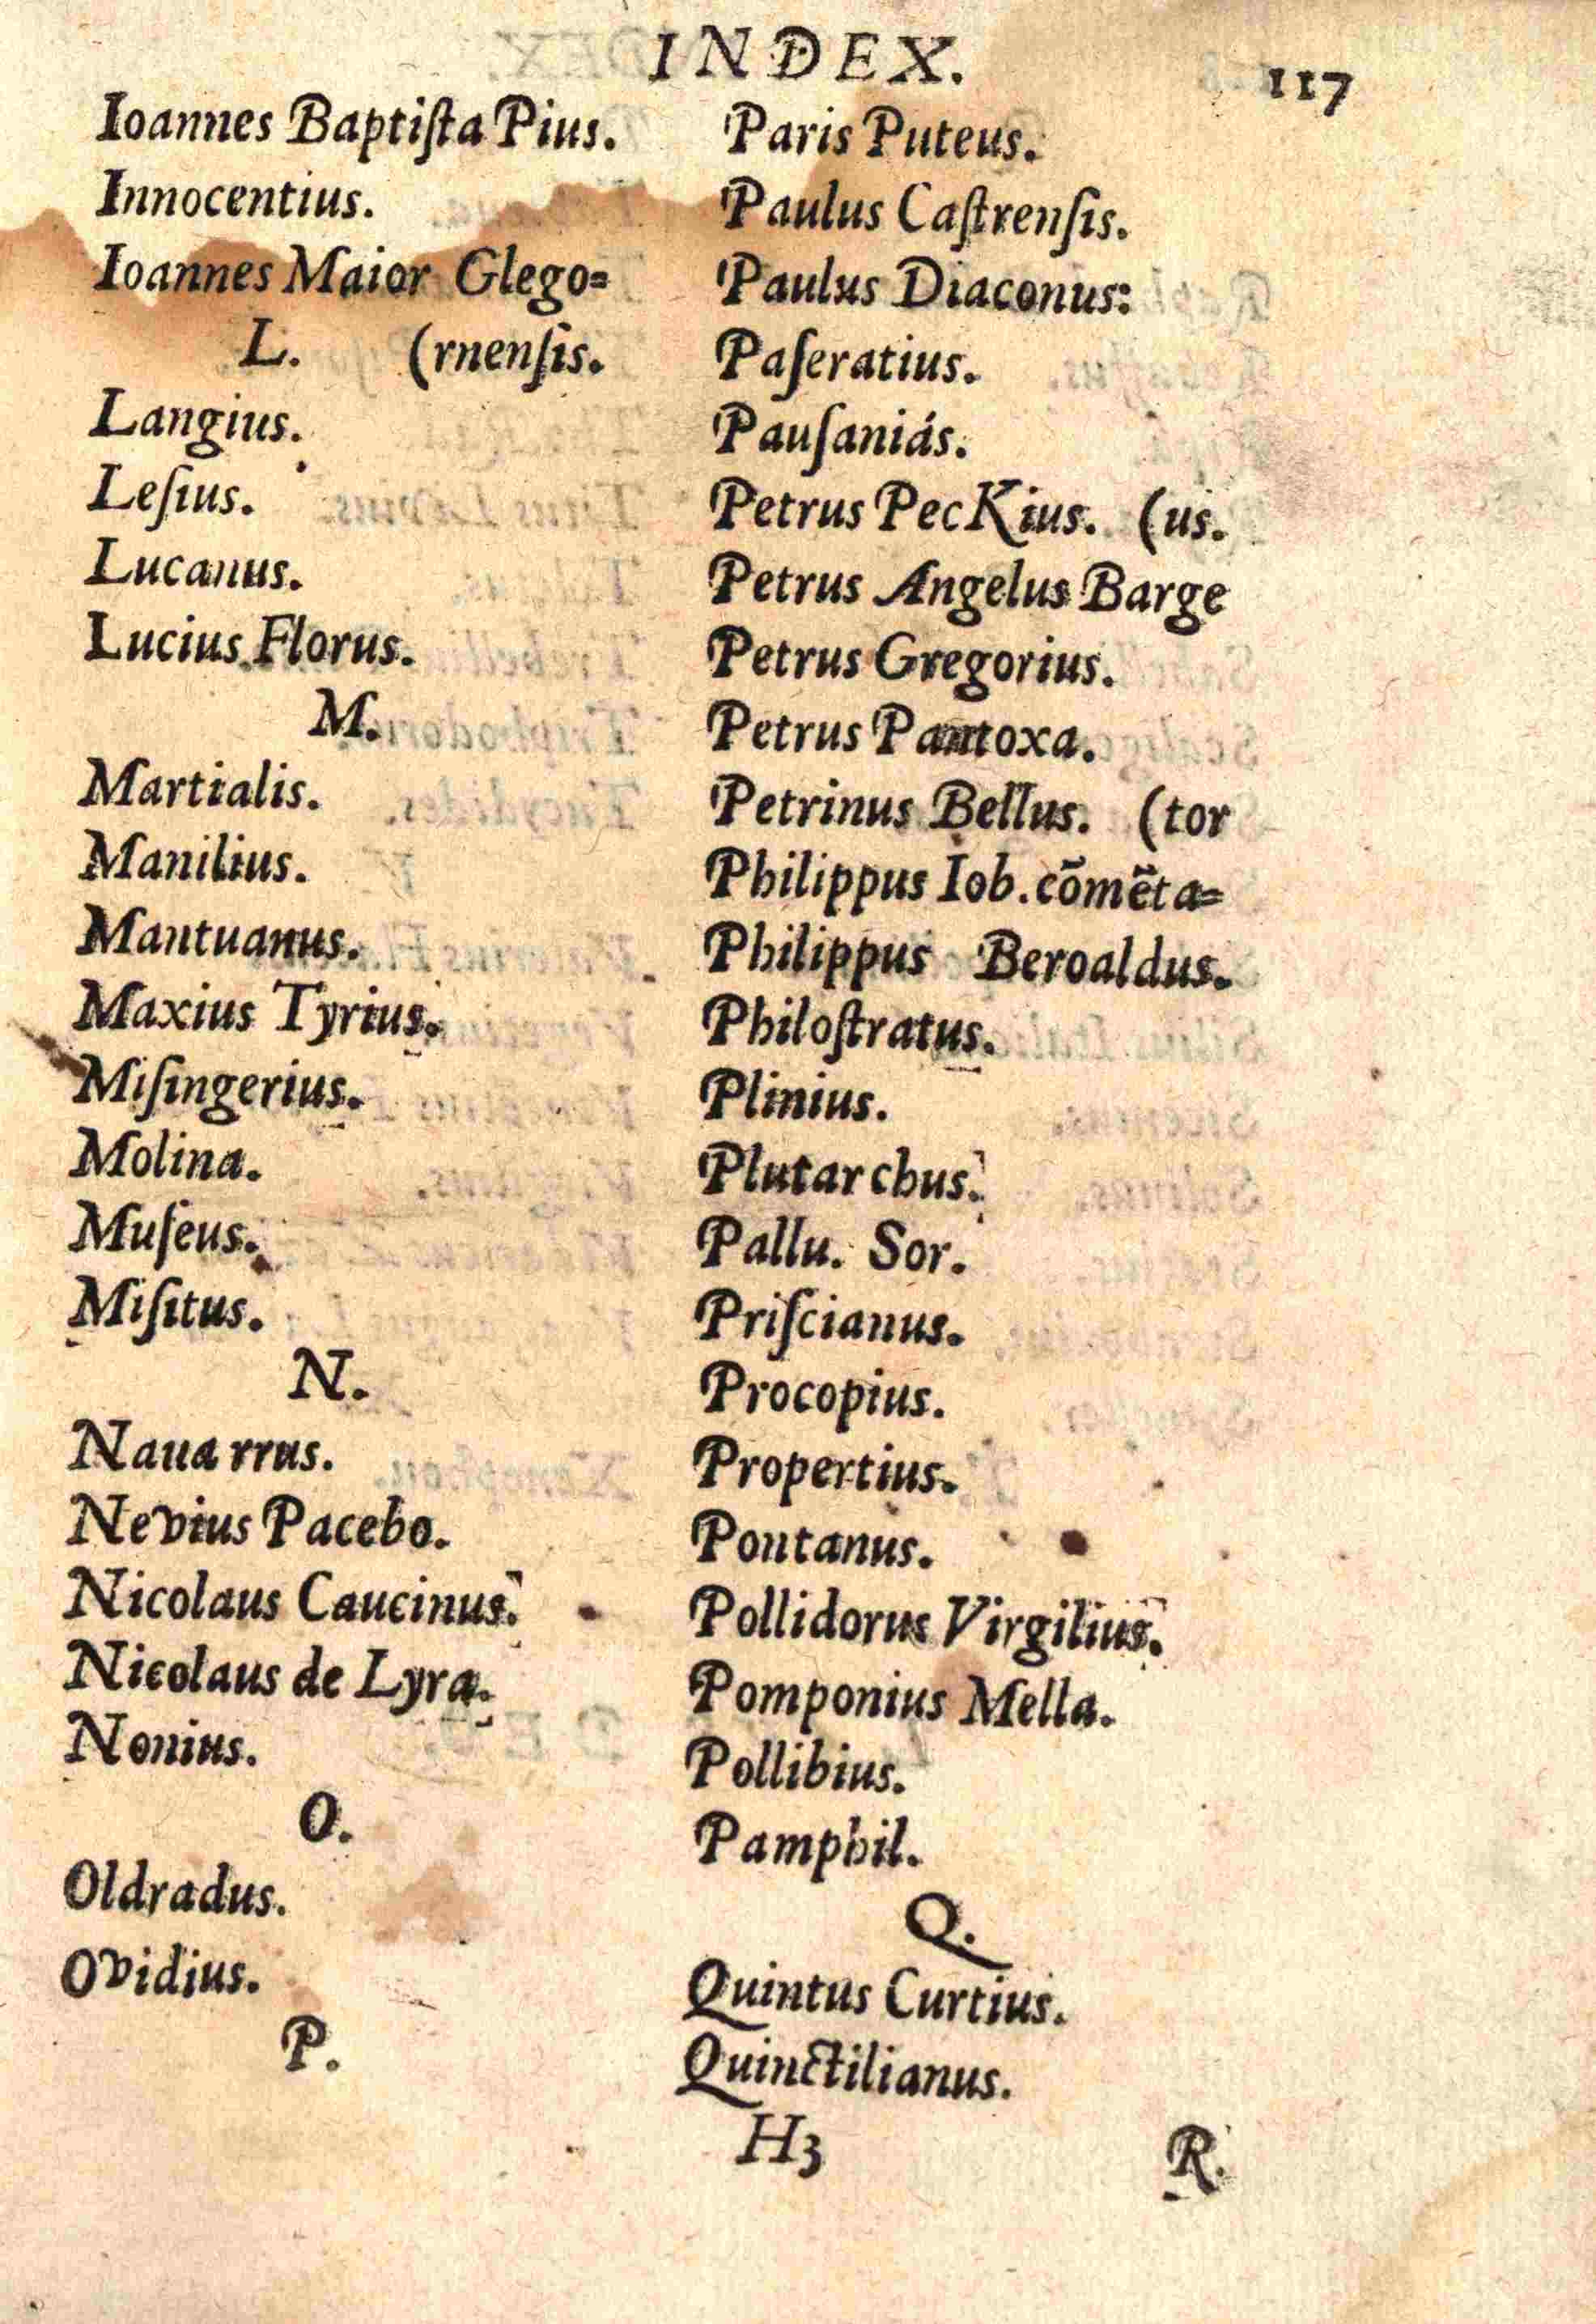 INDEX.
117
Ioannes Baptiſta Pius.
Innocentius.
Ioannes Maior Glego=
L. (rnenſis.
Langius.
Leſius.
Lucanus.
Lucius Florus.
M.
Martialis.
Manilius.
Mantuanus.
Maxius Tyrius.
Miſingerius.
Molina.
Muſeus.
Miſitus.
N.
Naua rrus.
Nevius Pacebo.
Nicolaus Caucinus.
Nicolaus de Lyra.
Nonius.
O.
Oldradus.
Ovidius.
P.
Paris Puteus.
Paulus Caſtrenſis.
Paulus Diaconus:
Paſeratius.
Pauſaniás.
Petrus PecKius. (us.
Petrus Angelus Barge
Petrus Gregorius.
Petrus Pantoxa.
Petrinus Bellus. (tor
Philippus Iob. cōmēta=
Philippus Beroaldus.
Philoſtratus.
Plinius.
Plutarchus.
Pallu. Sor.
Priſcianus.
Procopius.
Propertius.
Pontanus.
Pollidorus Virgilius.
Pomponius Mella.
Pollibius.
Pamphil.
Q.
Quintus Curtius.
Quinctilianus.
H3
R.